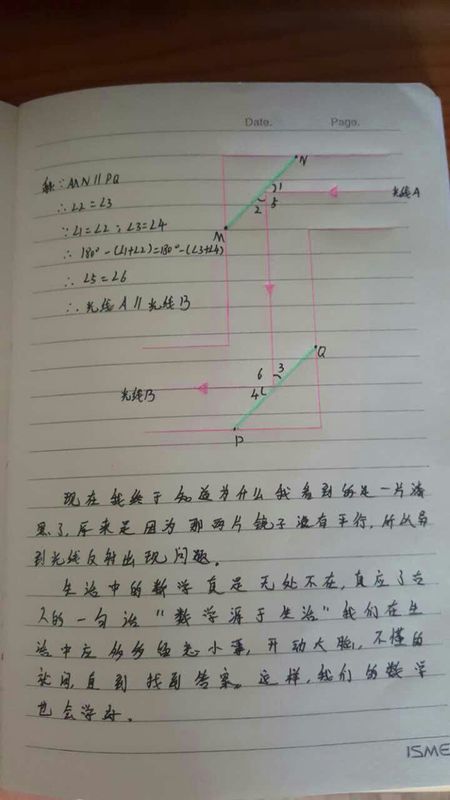 Date.
Page.
解:∵MN∥PQ
∴∠2=∠3
∵∠1=∠2;∠3=∠4
∴180°-(∠1+∠2)=180°-(∠3+∠4)
∴∠5=∠6
∴光线A∥光线B
N
1
光线A
2
5
M
Q
6
3
光线B
4
P
现在我终于知道为什么我看到的是一片漆
黑了,原来是因为那两片镜子没有平行,所以导
到光线反射出现问题。
生活中的数学真是无处不在,真应了古
人的一句话“数学源于生活”我们在生
活中应多多留意小事,开动大脑,不懂的
就问,直到找到答案。这样,我们的数学
也会学好。
ISME